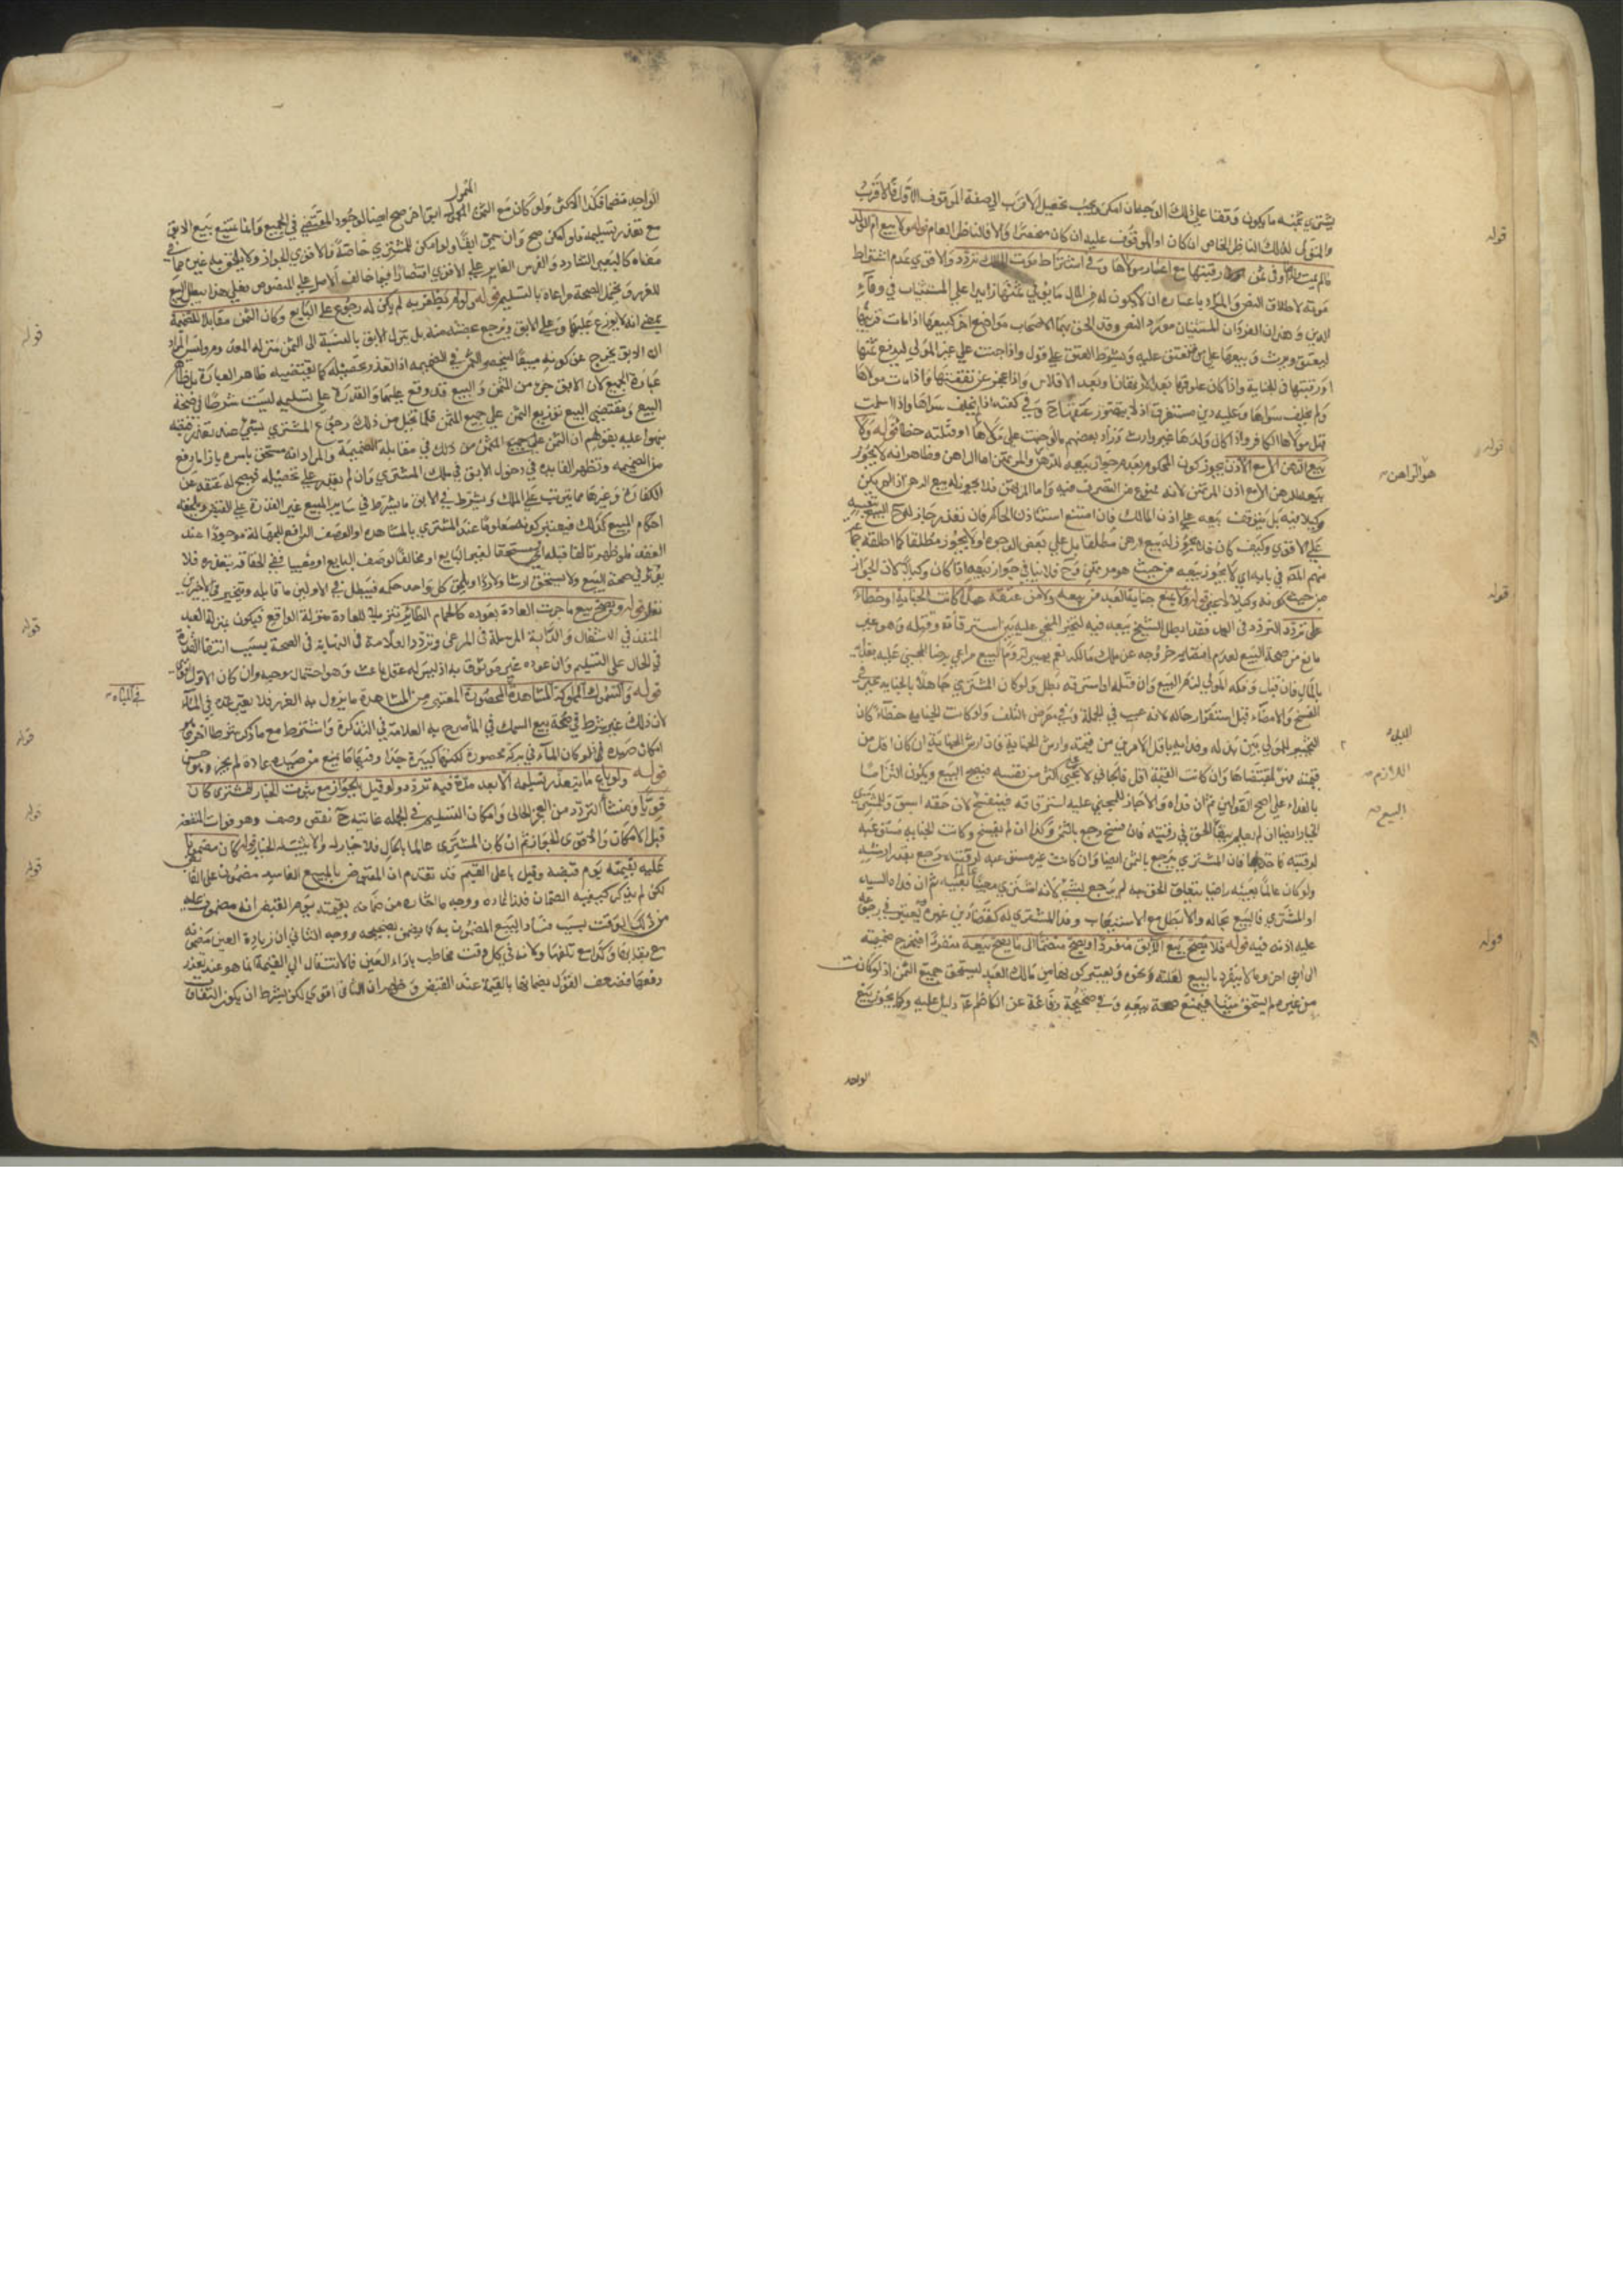 يشتري بثمنه ما يكون وقفا على ذلك الوجه ان امكن ويجب تحصيل الاقرب الى صفة الموقوف الاول فالاقرب
والمتولي لذلك الناظر الخاص ان كان او الموقوف عليه ان كان منحصرا والا فالناظر العام قوله ولا بيع ام الولد
ما لم يمت ولدها او في ثمن رقبتها مع اعسار مولاها وفي اشتراط موت المالك تردد والاقوى عدم اشتراط
موته لاطلاق النص والمراد باعساره ان لا يكون له من المال ما يوفي ثمنها زايدا على المستثنيات في وفاء
الدين وهذان الفردان المستثنيان مورد النص وقد الحق بهما الاصحاب مواضع اخر كبيعها اذا مات قريبها
ليعتق ويرث وبيعها على من تنعتق عليه وبشرط العتق على قول واذا جنت على غير المولى ليدفع ثمنها
او رقبتها في الجناية واذا كان علوقها بعد الارتهان او بعد الافلاس واذا عجز عن نفقتها واذا مات مولاها
ولم يخلف سواها وعليه دين مستغرق اذ لا يتصور عتقها ح وفي كفنه اذا لم يخلف سواها واذا اسلمت
قبل مولاها الكافر واذا كان ولدها غير وارث وزاد بعضهم ما لو جنت على مولاها او قتلته خطا قوله ولا
بيع الرهن الا مع الاذن
بيعه للرهن الا مع اذن المرتهن لانه ممنوع من التصرف فيه واما المرتهن فلا يجوز له بيع الرهن اذا لم يكن
وكيلا فيه بل يتوقف بيعه على اذن المالك فان امتنع استاذن الحاكم فان تعذر جاز له ح البيع بنفسه
على الاقوى وكيف كان فلا يجوز له بيع الرهن مطلقا بل على بعض الوجوه ولا يجوز مطلقا كما اطلقه جماعة
من حيث كونه وكيلا لا مرتهنا قوله ولا يمنع جناية العبد من بيعه ولا من عتقه عمدا كانت الجناية او خطاء
على تردد التردد في العمد فقد ابطل الشيخ بيعه فيه لتخير المجني عليه بين استرقاقه وقتله وهو غير
مانع من صحة البيع لعدم اقتضايه خروجه عن ملك مالكه نعم يصير لزوم البيع مراعى برضا المجني عليه بفدائه
بالمال فان قبل وفكه المولى لزم البيع وان قتله او استرقه بطل ولو كان المشتري جاهلا بالجناية تخير في
الفسخ والامضاء قبل استقرار حاله لانه عيب في الجملة وفي معرض التلف ولو كانت الجناية خطاء كان
التخيير للمولى بين بذله وفدائه باقل الامرين من قيمته وارش الجناية فان ارش الجناية ان كان اقل من
قيمته فهو المقتضاها وان كانت القيمة اقل فالجاني لا يجني اكثر من نفسه فيصح البيع ويكون التزاما
بالفداء على اصح القولين ثم ان فداه والا جاز للمجني عليه استرقاقه فينفسخ لان حقه اسبق وللمشتري
الخيار ايضا ان لم يعلم بتعلق الحق في رقبته فان فسخ رجع بالثمن وكذا ان لم يفسخ وكانت الجناية مستوعبة
لرقبته فاخذها فان المشتري يرجع بالثمن ايضا وان كانت غير مستوعبة لرقبته رجع بقدر ارشه
ولو كان عالما بعيبه راضيا بتعلق الحق به لم يرجع بشي لانه اشترى معيبا عالما بعيبه ثم ان فداه السيد
او المشتري فالبيع بحاله والا بطل مع الاستيعاب وفداء المشتري له كقضاء دين غيره يعتبر في رجوعه
عليه اذنه فيه قوله فلا يصح بيع الابق منفردا ويصح منضما الى ما يصح بيعه منفردا
من غيره لم يستحق شيئا فيمتنع صحة بيعه وفي صحيحة رفاعة عن الكاظم ع دليل عليه وكما يجوز بيع
الواحد
هو الراهن
قوله
قوله
قوله
قوله
اللازم
البيع
الواحد منضما فكذا الاكثر ولو كان مع الثمن المجهول ابق اخر صح ايضا لوجود المقتضي في الجميع وانما يمتنع بيع الابق
مع تعذر تسليمه فلو امكن صح وان سمي ابقا ولو امكن للمشتري خاصة فالاقوى الجواز ولا يلحق به غيره مما في
معناه كالبعير الشارد والفرس الغاير على الاقوى اقتصارا فيما خالف الاصل على المنصوص فعلى هذا يبطل البيع
للغرر ويحتمل الصحة مراعاة بالتسليم قوله ولو لم يظفر به لم يكن له رجوع على البايع وكان الثمن مقابلا للضميمة
بمعنى انه لا يوزع عليها وعلى الابق ويرجع بحصته منه بل ينزل الابق بالنسبة الى الثمن منزلة المعدوم وليس المراد
ان الابق يخرج عن كونه مبيعا لينحصر الثمن في الضميمة اذا تعذر تحصيله كما يقتضيه ظاهر العبارة بل ظاهر
عبارة الجميع لان الابق جزء من المثمن والبيع قد وقع عليهما والقدرة على تسليمه ليست شرطا في صحة
البيع ومقتضى البيع توزيع الثمن على جميع المثمن فلما تخيل من ذلك رجوع المشتري بشي منه تعذر قبضه
من الضميمة وتظهر الفايدة في دخول الابق في ملك المشتري وان لم يقدر على تحصيله فيصح له عتقه عن
الكفارة وغيرها مما يترتب على الملك ويشترط في الابق ما يشترط في ساير المبيع غير القدرة على التسليم
احكام البيع كذلك فيعتبر كونه معلوما عند المشتري بالمشاهدة او الوصف الرافع للجهالة موجودا عند
العقد فلو ظهر تالفا قبله او مستحقا لغير البايع او مخالفا لوصف البايع او معيبا
نظر قوله ويصح بيع ما جرت العادة بعوده كالحمام الطاير تنزيلا للعادة منزلة الواقع فيكون بمنزلة العبد
المنفذ في الاشغال والدابة المرسلة في المرعى وتردد العلامة في النهاية في الصحة بسبب انتفاء القدرة
في الحال على التسليم وان عوده غير موثوق به اذ ليس له عقل باعث وهو احتمال موجه وان كان الاول اقوى
قوله والسموك المملوكة المشاهدة المحصورة المعتبر من المشاهدة ما يزول به الغرر فلا يعتبر عده في الماء
لان ذلك غير شرط في صحة بيع السمك في الماء صرح به العلامة في التذكرة واشترط مع ما ذكر شرطا اخر وهو
امكان صيده فلو كان الماء في بركة محصورة لكنها كبيرة جدا وفيها ما يمنع من صيده عادة لم يجز وهو حسن
قوله ولو باع ما يتعذر تسليمه الا بعد مدة فيه تردد ولو قيل بالجواز مع ثبوت الخيار للمشتري كان
قويا ومنشا التردد من العجز الحالي وامكان التسليم في الجملة غايته ح نقص وصف وهو فوات المنفعة
قبل الامكان والاقوى الجواز ثم ان كان المشتري عالما بالحال فلا خيار له والا ثبت له الخيار قوله كان مضمونا
عليه بقيمته يوم قبضه وقيل باعلى القيم قد تقدم ان المقبوض بالبيع الفاسد مضمون على القابض
لكن لم يذكر كيفية الضمان فلذا اعاده ووجه ما اختاره من ضمانه بقيمته يوم القبض انه مضمون عليه
من ذلك الوقت بسبب فساد البيع المضمون به كما يضمن بصحيحه ووجه الثاني ان زيادة العين مضمونة
مع بقائها فكذا مع تلفها ولانه في كل وقت مخاطب باداء العين فالانتقال الى القيمة انما هو عند تعذر
دفعها فضعف القول بضمانها بالقيمة عند القبض وظهر ان الثاني اقوى لكن يشترط ان يكون التفاوت
قوله
قوله
في المياه
قوله
قوله
قوله